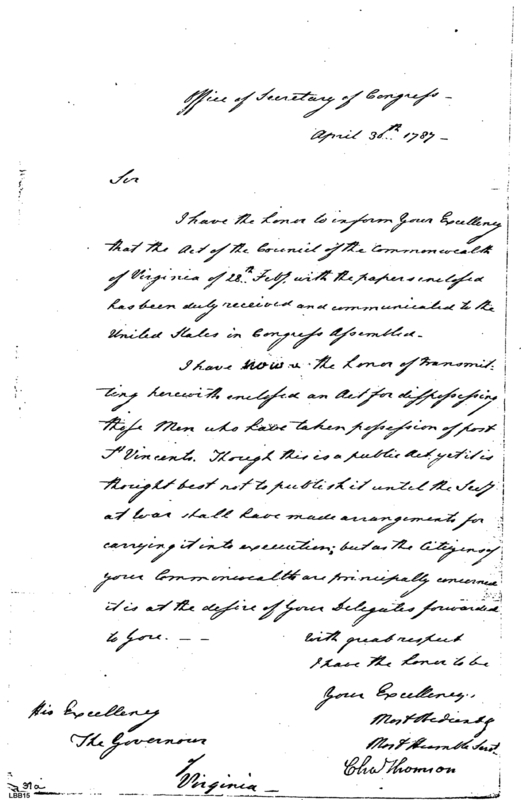 Office of Secretary of Congress –
April 30th 1787 –
Sir
I have the honor to inform Your Excellency
that the Act of the Council of the Commonwealth
of Virginia of 28th Feby. with the papers enclosed
has been duly received and communicated to the
United States in Congress Assembled –
I have now the honor of transmit-
ting herewith enclosed an Act for dispossessing
those Men who have taken possession of post
St Vincents. Though this is a public Act yet it is
thought best not to publish it until the Secy
at War shall have made arrangements for
carrying it into execution; but as the Citizens of
your Commonwealth are principally concerned
it is at the desire of Your Delegates forwarded
to You. – –
With great respect
I have the honor to be
Your Excellency's
Most Obedient &
Most Humble Servt.
Chas Thomson
His Excellency
The Governour
of
Virginia –
LBB15